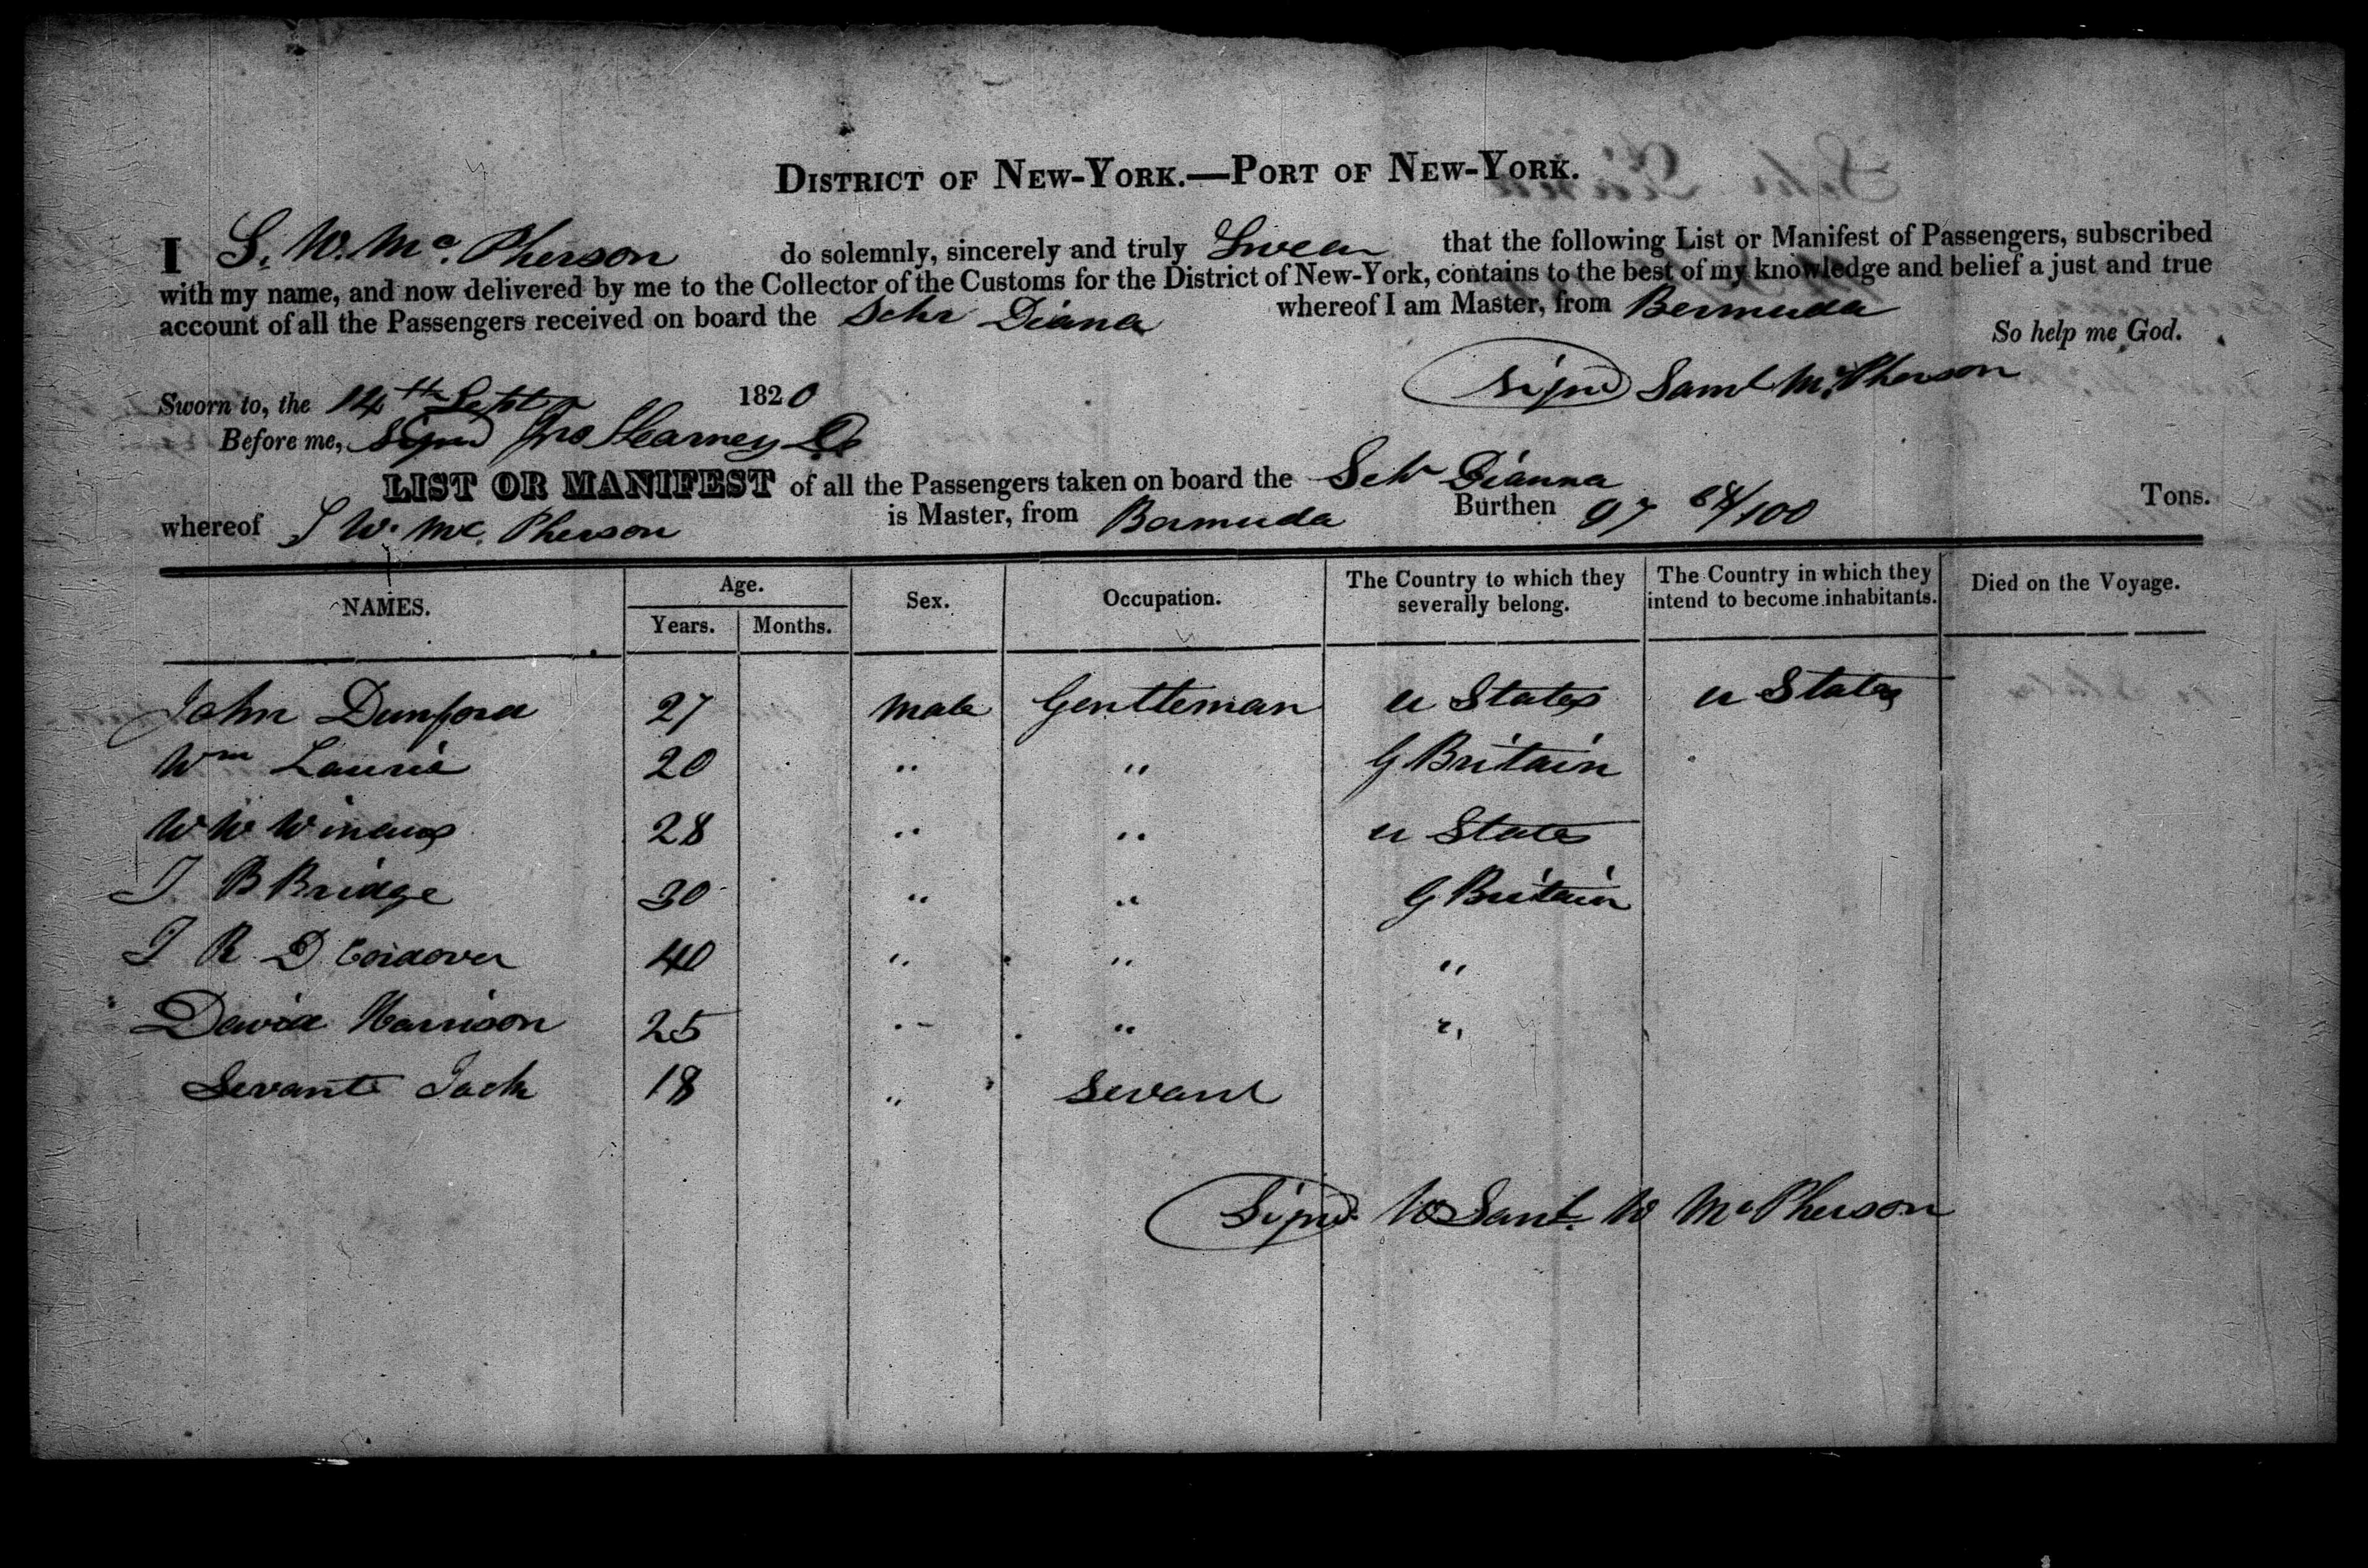 DISTRICT OF NEW-YORK.—PORT OF NEW-YORK.
I S. W. Mc. Pherson do solemnly, sincerely and truly Swear that the following List or Manifest of Passengers, subscribed
with my name, and now delivered by me to the Collector of the Customs for the District of New-York, contains to the best of my knowledge and belief a just and true
account of all the Passengers received on board the Schr Diana whereof I am Master, from Bermuda
So help me God.
Signd Saml McPherson
Sworn to, the 14th Sept 1820
Before me, Signd Jno
LIST OR MANIFEST of all the Passengers taken on board the Schr Dianna
whereof S W. Mc. Pherson is Master, from Bermuda Burthen 97 /100 Tons.
NAMES. Age. Years. Months. Sex. Occupation. The Country to which they severally belong. The Country in which they intend to become inhabitants. Died on the Voyage.
John Dunford 27 Male Gentleman U States U States
Wm Laurie 20 " " G Britain
W W Winans 28 " " U States
J. B Bridge 30 " " G Britain
J R D Cordover 40 " " "
David Harrison 25 " " "
Sevant Jack 18 " Sevant
Signd Saml. W McPherson